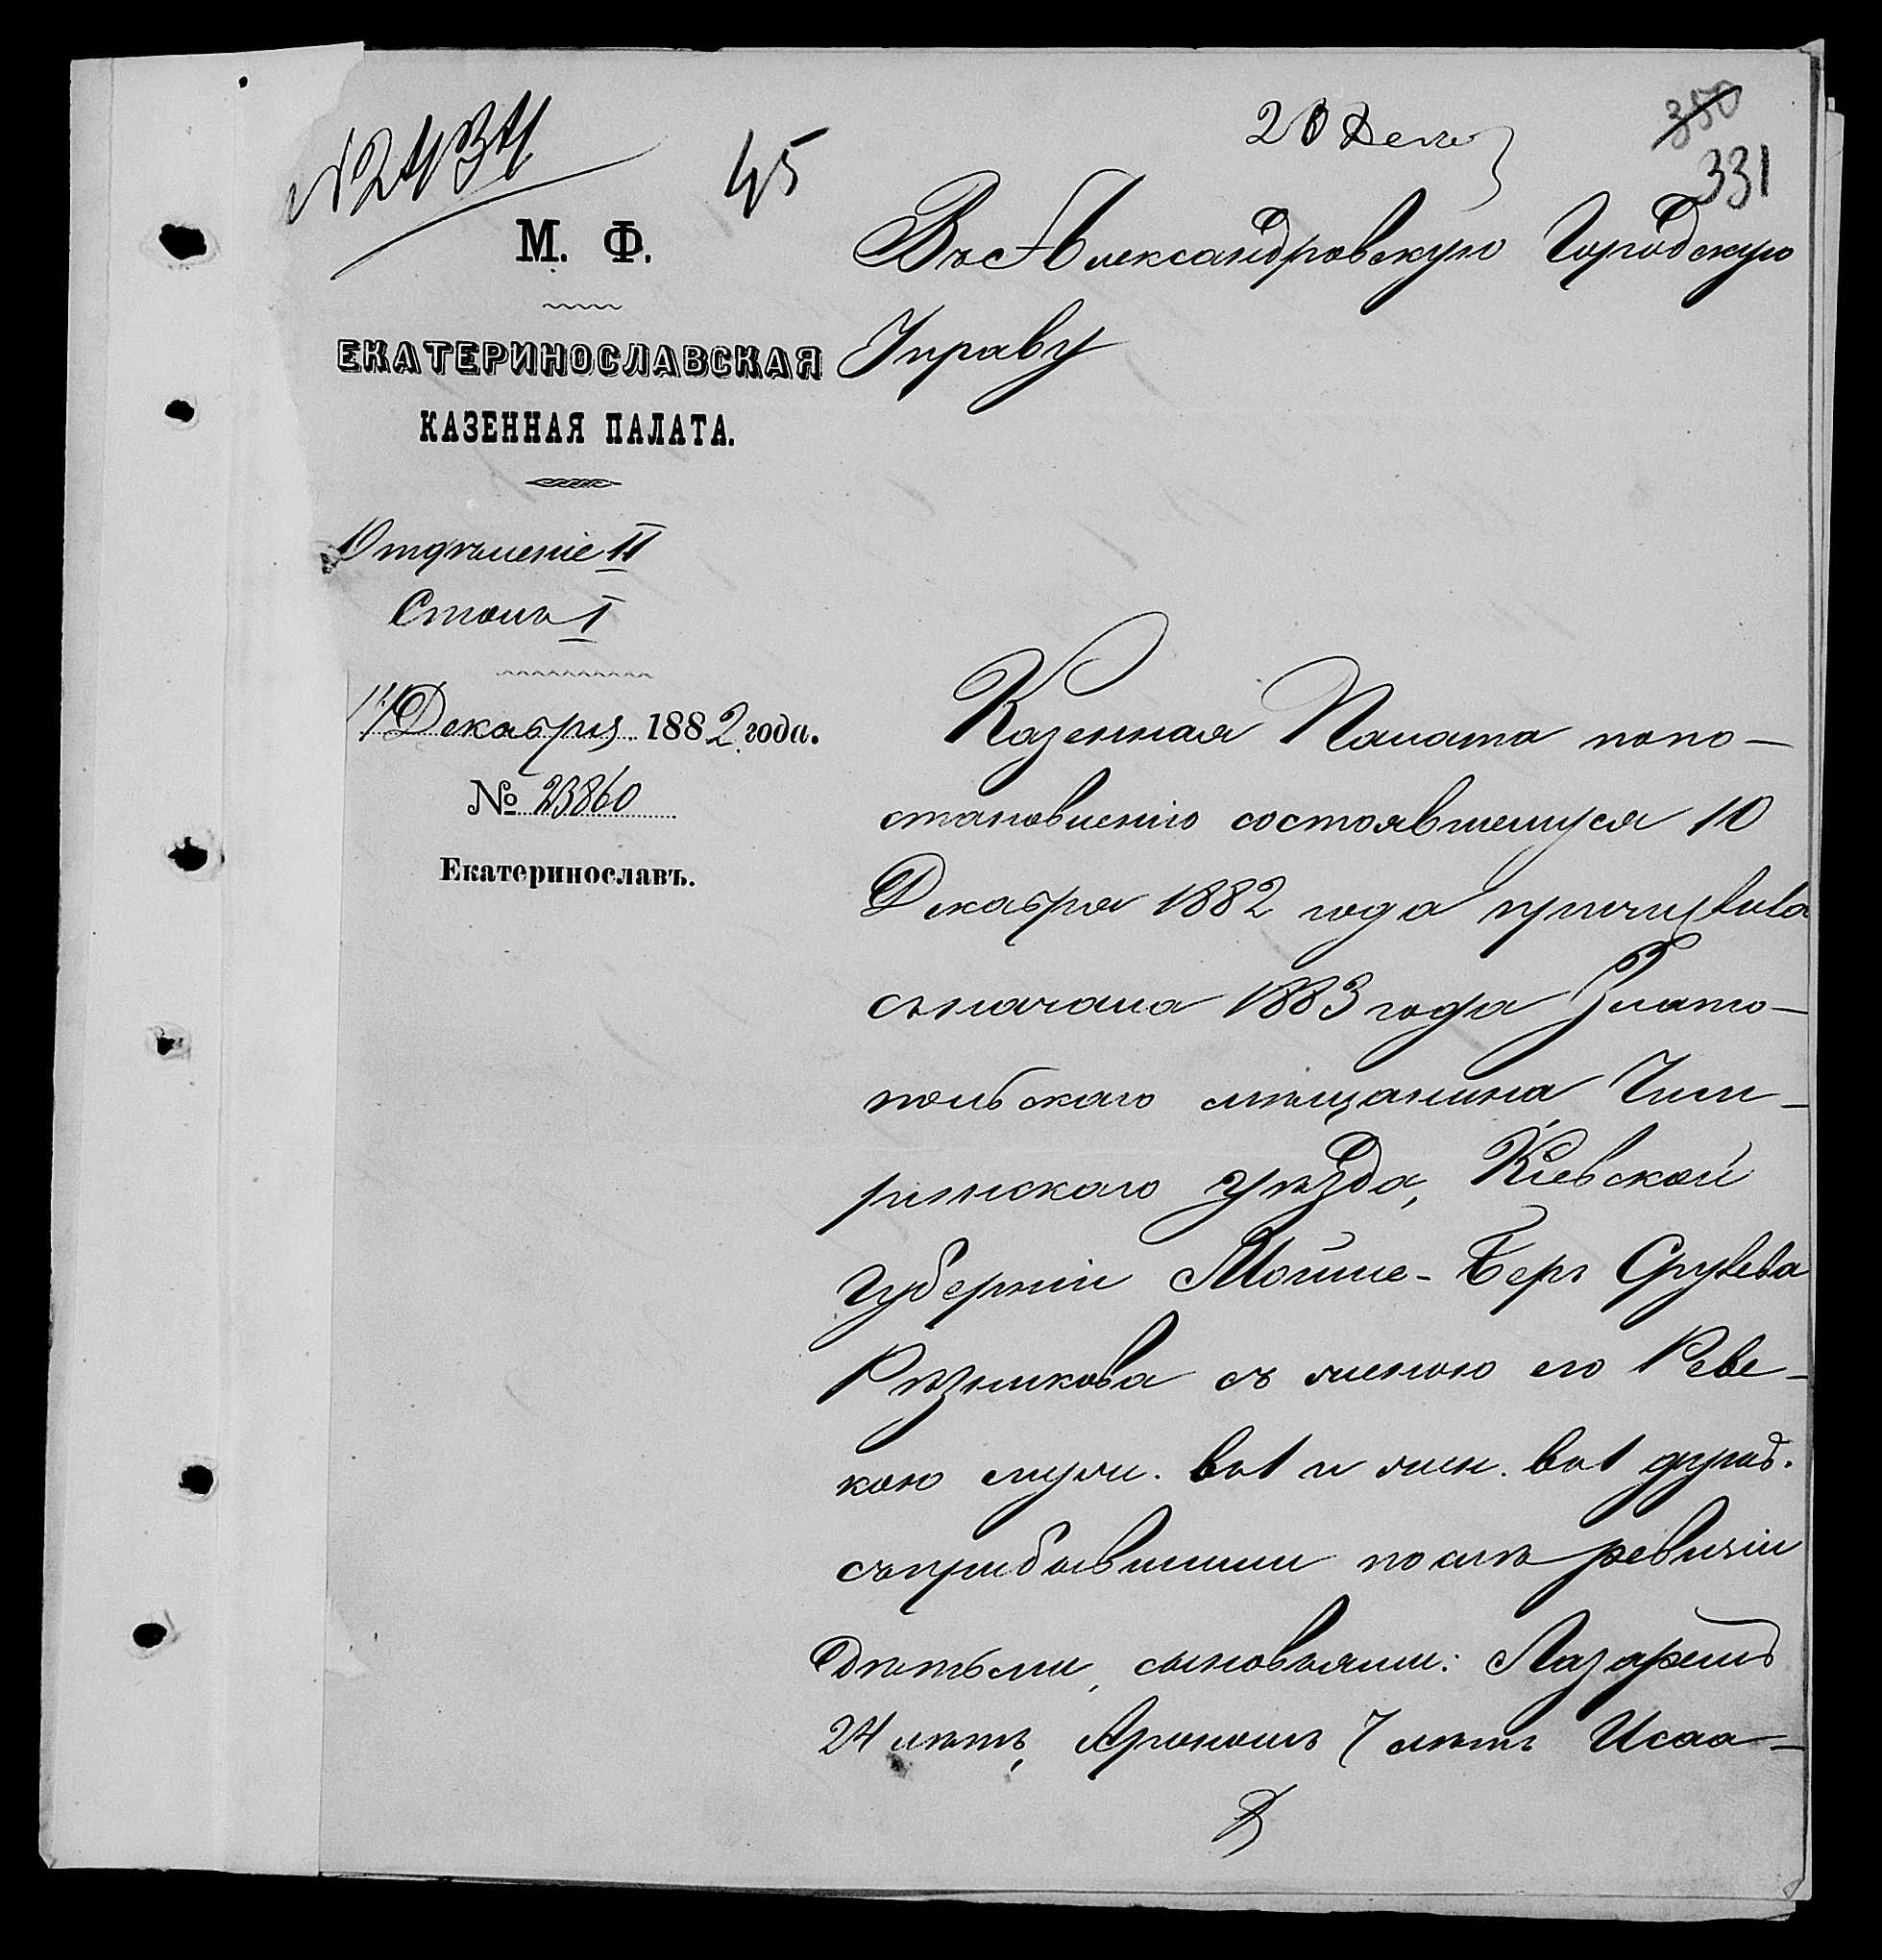 № 2434
45
20 Дек
350
331
М. Ф.
ЕКАТЕРИНОСЛАВСКАЯ
КАЗЕННАЯ ПАЛАТА.
Отдѣленіе II
Столъ I
14 Декабря 1882 года.
№ 23860
Екатеринославъ.
Въ Александровскую Городскую
Управу
Казенная Палата по по-
становленію состоявшемуся 10
Декабря 1882 года причислила
съ начала 1883 года Злато-
польскаго мѣщанина Чиги-
ринскаго уѣзда, Кіевской
губерніи Мойше-Беръ Срулева
Рѣзникова съ женою его Реве-
кою муж. въ 1 и жен. въ 1 душѣ.
съ прибывшими послѣ ревизіи
дѣтьми, сыновьями: Лазаремъ
24 лѣтъ, Арономъ 7 лѣтъ Исаа-